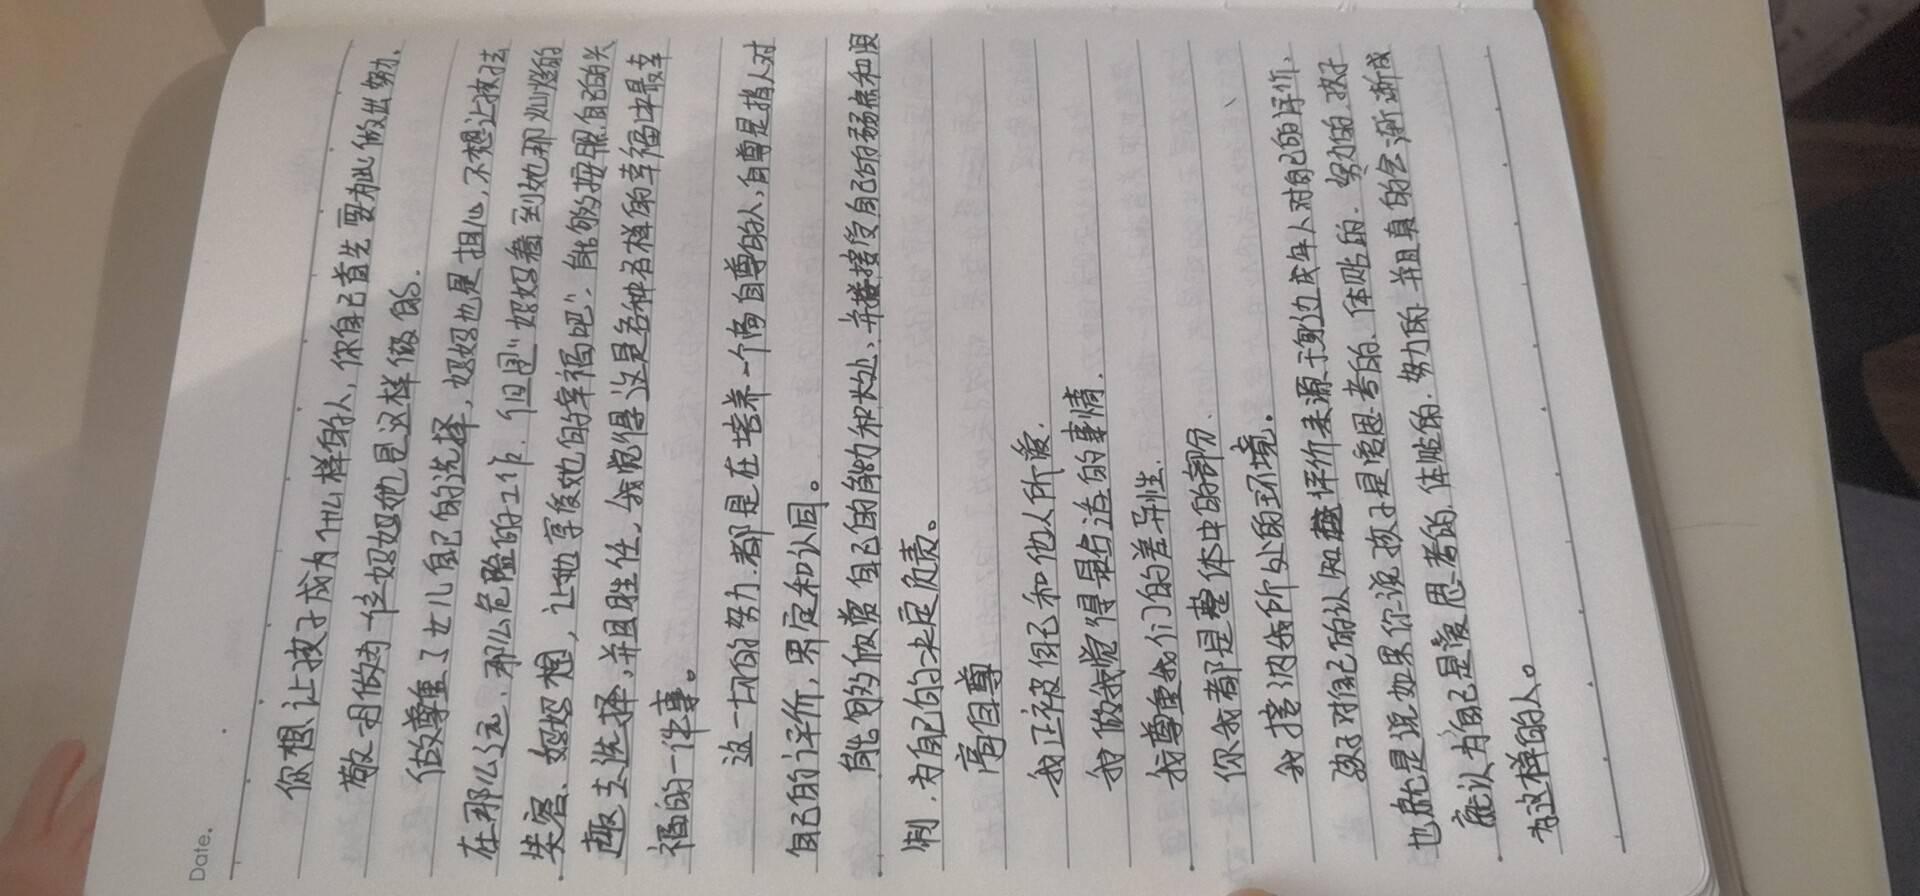 Date.
你想让孩子成为什么样的人，你自己首先要为此做出努力.
敬一丹做为一位妈妈她也是这样做的.
做尊重了女儿自己的选择，妈妈也是担心，不想让孩子去
在那么远，那么危险的工作. 但是"妈妈看到她那灿烂的
笑容、妈妈想，让她享受她的幸福吧"、能够按照自己的兴
趣去选择，并且胜任，我觉得这是各种各样的幸福中最幸
福的一件事。
这一切的努力.都是在培养一个高自尊的人，自尊是指人对
自己的评价，界定和认同。
能够欣赏自己的能力和长处，并接受自己的弱点和限
制.为自己的决定负责。
高自尊
我正被自己和他人所爱.
我做我觉得最合适的事情.
我尊重我们的差异性.
你我都是整体中的部分、
我接纳我所处的环境.
孩子对自己的认知评价来源于身边成年人对自己的评价、
也就是说如果你说孩子是爱思考的.体贴的.努力的.孩子
就认为自己是爱思考的.体贴的.努力的 并且真的会渐渐成
为这样的人。